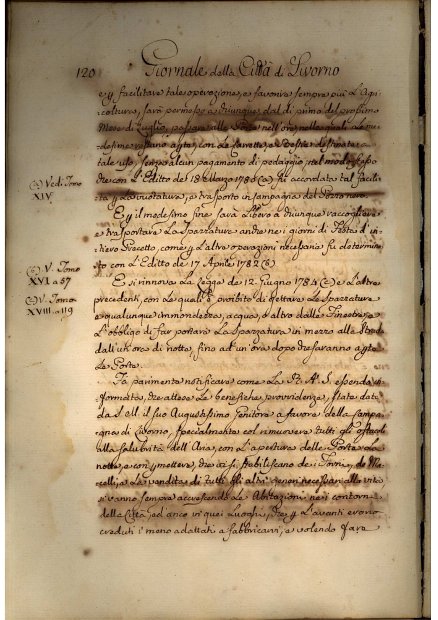 120 Giornale della Città di Livorno
e p facilitare tale operazione, e favorire sempre più l'Agri
coltura, sarà permesso a chiunque dal dì primo del prossimo
Mese di Luglio, passare alle Porte nell'ore, nelle quali le me
desime restano aperte, con le carrette, e Bestie destinate a
tale uso, senza alcun pagamento di pedaggio, nel modo
che con l'Editto de' 18 Marzo 1785 (a) fu accordato
vuotatura, e trasporto in campagna del Pozzo nero.
(a) Vedi Tomo
XIV.
E p il medesimo fine sarà libero a chiunque raccogliere
e trasportare la spazzatura anche nei giorni di Festa d'in
tiero Precetto, come p l'altre operazioni necessarie fu determin
to con l'Editto de' 17 Aprile 1782 (b)
(b) V. Tomo
XVI a 57
E si rinnova la Legge de' 12 Giugno 1784 (c) e l'altre
precedenti, con le quali è proibito di gettare le spazzature
e qualunque immondezza, acqua, o altro dalle Finestre, e
l'obbligo di far portare la spazzatura in mezzo alle strade
dall'un'ora di notte, fino ad un'ora dopo che saranno aperte
le Porte.
(c) V. Tomo
XVIII a 119
Fa parimente notificare come la R. A. S. essendo
informata, che attese le benefiche provvidenze, state date
da S. M. il suo Augustissimo Genitore a favore della Campa
gna di Livorno, specialmente col rimuovere tutti gli ostacoli
alla salubrità dell'Aria, con l'apertura delle Porte
notte, e con p mettere, che ci si stabiliscano de' Forni, de' Ma
celli, e la vendita di tutti gli altri generi necessari alla vita
si vanno sempre accrescendo le Abitazioni nei contorni
della Città, ed anco in quei luoghi, che p l'avanti erano
creduti i meno adattati a fabbricarvi, e volendo fare